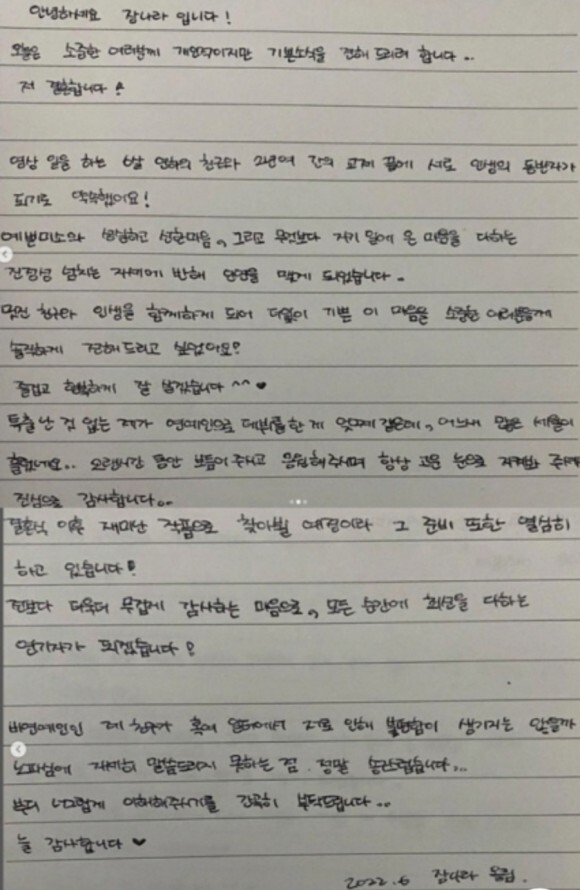 안녕하세요 장나라 입니다!
오늘은 소중한 여러분께 개인적이지만 기쁜소식을 전해 드리려 합니다..
저 결혼합니다!
영상 일을 하는 6살 연하의 친구와 2년여 간의 교제 끝에 서로 인생의 동반자가
되기로 약속했어요!
예쁜미소와 성실하고 선한마음, 그리고 무엇보다 자기 일에 온 마음을 다하는
진정성 넘치는 자세에 반해 인연을 맺게 되었습니다.
멋진 친구와 인생을 함께하게 되어 더없이 기쁜 이 마음을 소중한 여러분들께
솔직하게 전해드리고 싶었어요!
즐겁고 행복하게 잘 살겠습니다 ^^ ♥
특출난 것 없는 제가 연예인으로 데뷔를한 게 엊그제 같은데, 어느새 많은 세월이
흘렀네요.. 오랜시간 동안 보듬어주시고 응원해주시며 항상 고운 눈으로 지켜봐 주셔서
진심으로 감사합니다..
결혼식 이후 재미난 작품으로 찾아뵐 예정이라 그 준비 또한 열심히
하고 있습니다!
전보다 더욱더 무겁게 감사하는 마음으로, 모든 순간에 최선을 다하는
연기자가 되겠습니다!
비연예인인 제 친구가 혹여 일터에서 저로 인해 불편함이 생기지는 않을까
노파심에 자세히 말씀드리지 못하는 점 정말 송구스럽습니다...
부디 너그럽게 이해해주시기를 간곡히 부탁드립니다..
늘 감사합니다 ♥
2022.6 장나라 올림.